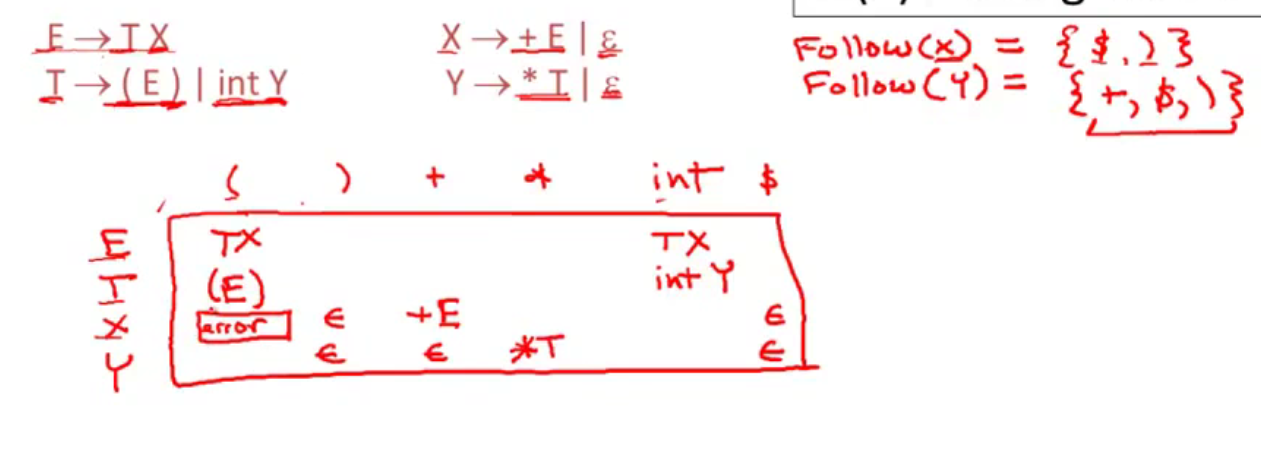 E → T X
X → + E | ε
T → ( E ) | int Y
Y → * T | ε
Follow(X) = { $, ) }
Follow(Y) = { +, $, ) }
( ) + * int $
E TX TX
T (E) int Y
X error ε +E ε
Y ε ε *T ε